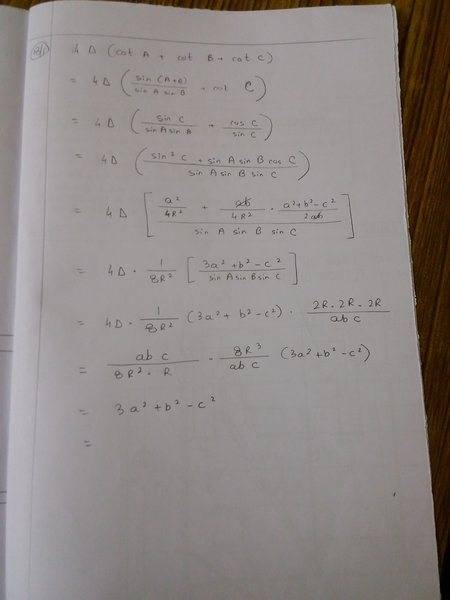 4 Δ (cot A + cot B + cot C)
= 4 Δ ( sin (A+B) / sin A sin B + cot C )
= 4 Δ ( sin C / sin A sin B + cos C / sin C )
= 4 Δ ( sin² C + sin A sin B cos C / sin A sin B sin C )
= 4 Δ [ a² / 4R² + ab / 4R² · a²+b²-c² / 2ab / sin A sin B sin C ]
= 4 Δ · 1 / 8R² [ 3a² + b² - c² / sin A sin B sin C ]
= 4 Δ · 1 / 8R² (3a² + b² - c²) · 2R · 2R · 2R / ab c
= ab c / 8R² · R · 8R³ / ab c (3a² + b² - c²)
= 3a² + b² - c²
=